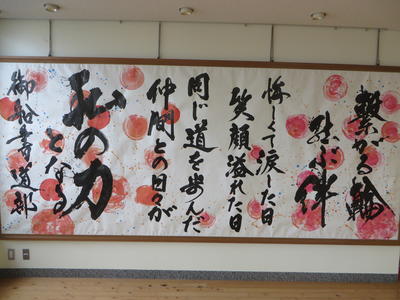 繋がる輪
結ぶ絆
悔しくて涙した日
笑顔溢れた日
同じ道を歩んだ
仲間との日々が
私の力
となる
御船書道部